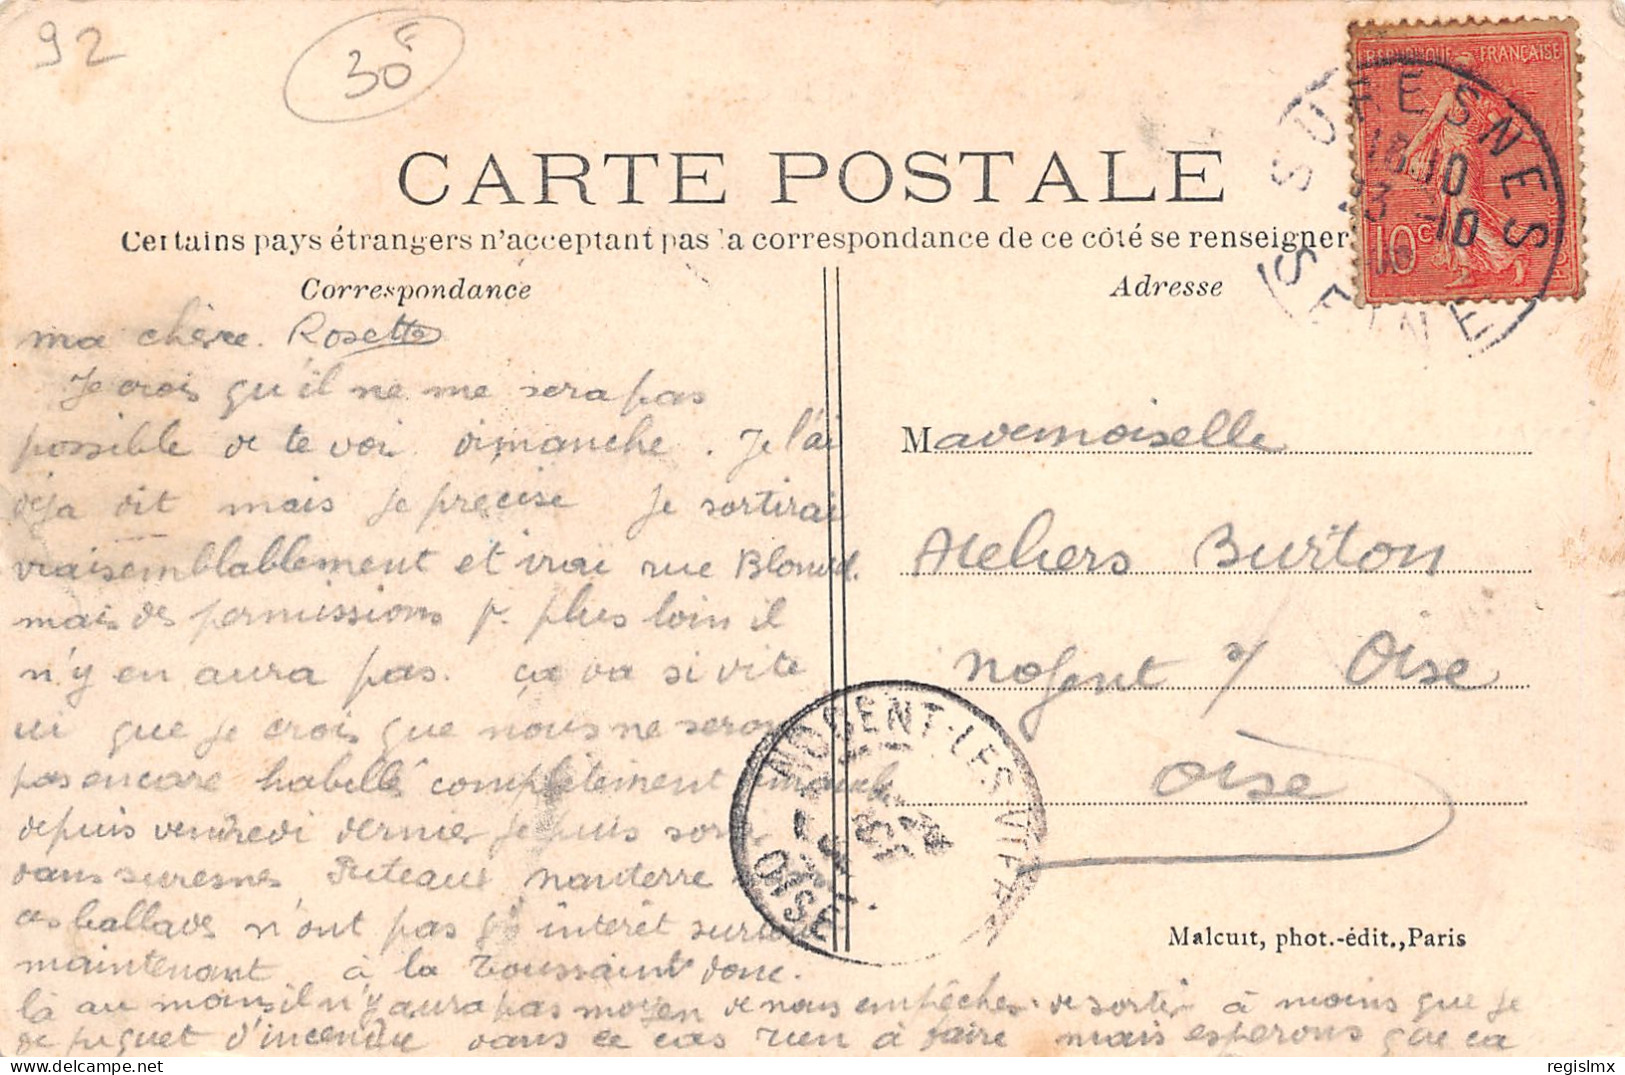 92
30F
REPUBLIQUE FRANÇAISE
10c
SURESNES
18 10
23 -10
SEINE
CARTE POSTALE
Certains pays étrangers n'acceptant pas la correspondance de ce côté se renseigner
Correspondance
Adresse
ma chère Rosette
Je crois qu'il ne me sera pas
possible de te voir dimanche. Je l'ai
déja dit mais je précise Je sortirai
vraisemblablement et irai rue Blomd.
mais des permissions p. plus loin il
n'y en aura pas. ça va si vite
ici que je crois que nous ne serons
pas encore habillé complètement dimanche
depuis vendredi dernier je puis sortir
dans suresnes Puteaux nanterre
ces ballades n'ont pas gd interêt surtout
maintenant à la Toussaint donc.
là au moins il n'y aura pas moyen de nous empêcher de sortir à moins que je
de piquet d'incendie dans ce cas rien à faire mais esperons que ca
Mademoiselle
Ateliers Burton
Nogent s/ Oise
Oise
NOGENT-LES-VIERGES
OISE
Malcuit, phot.-édit., Paris
regislmx